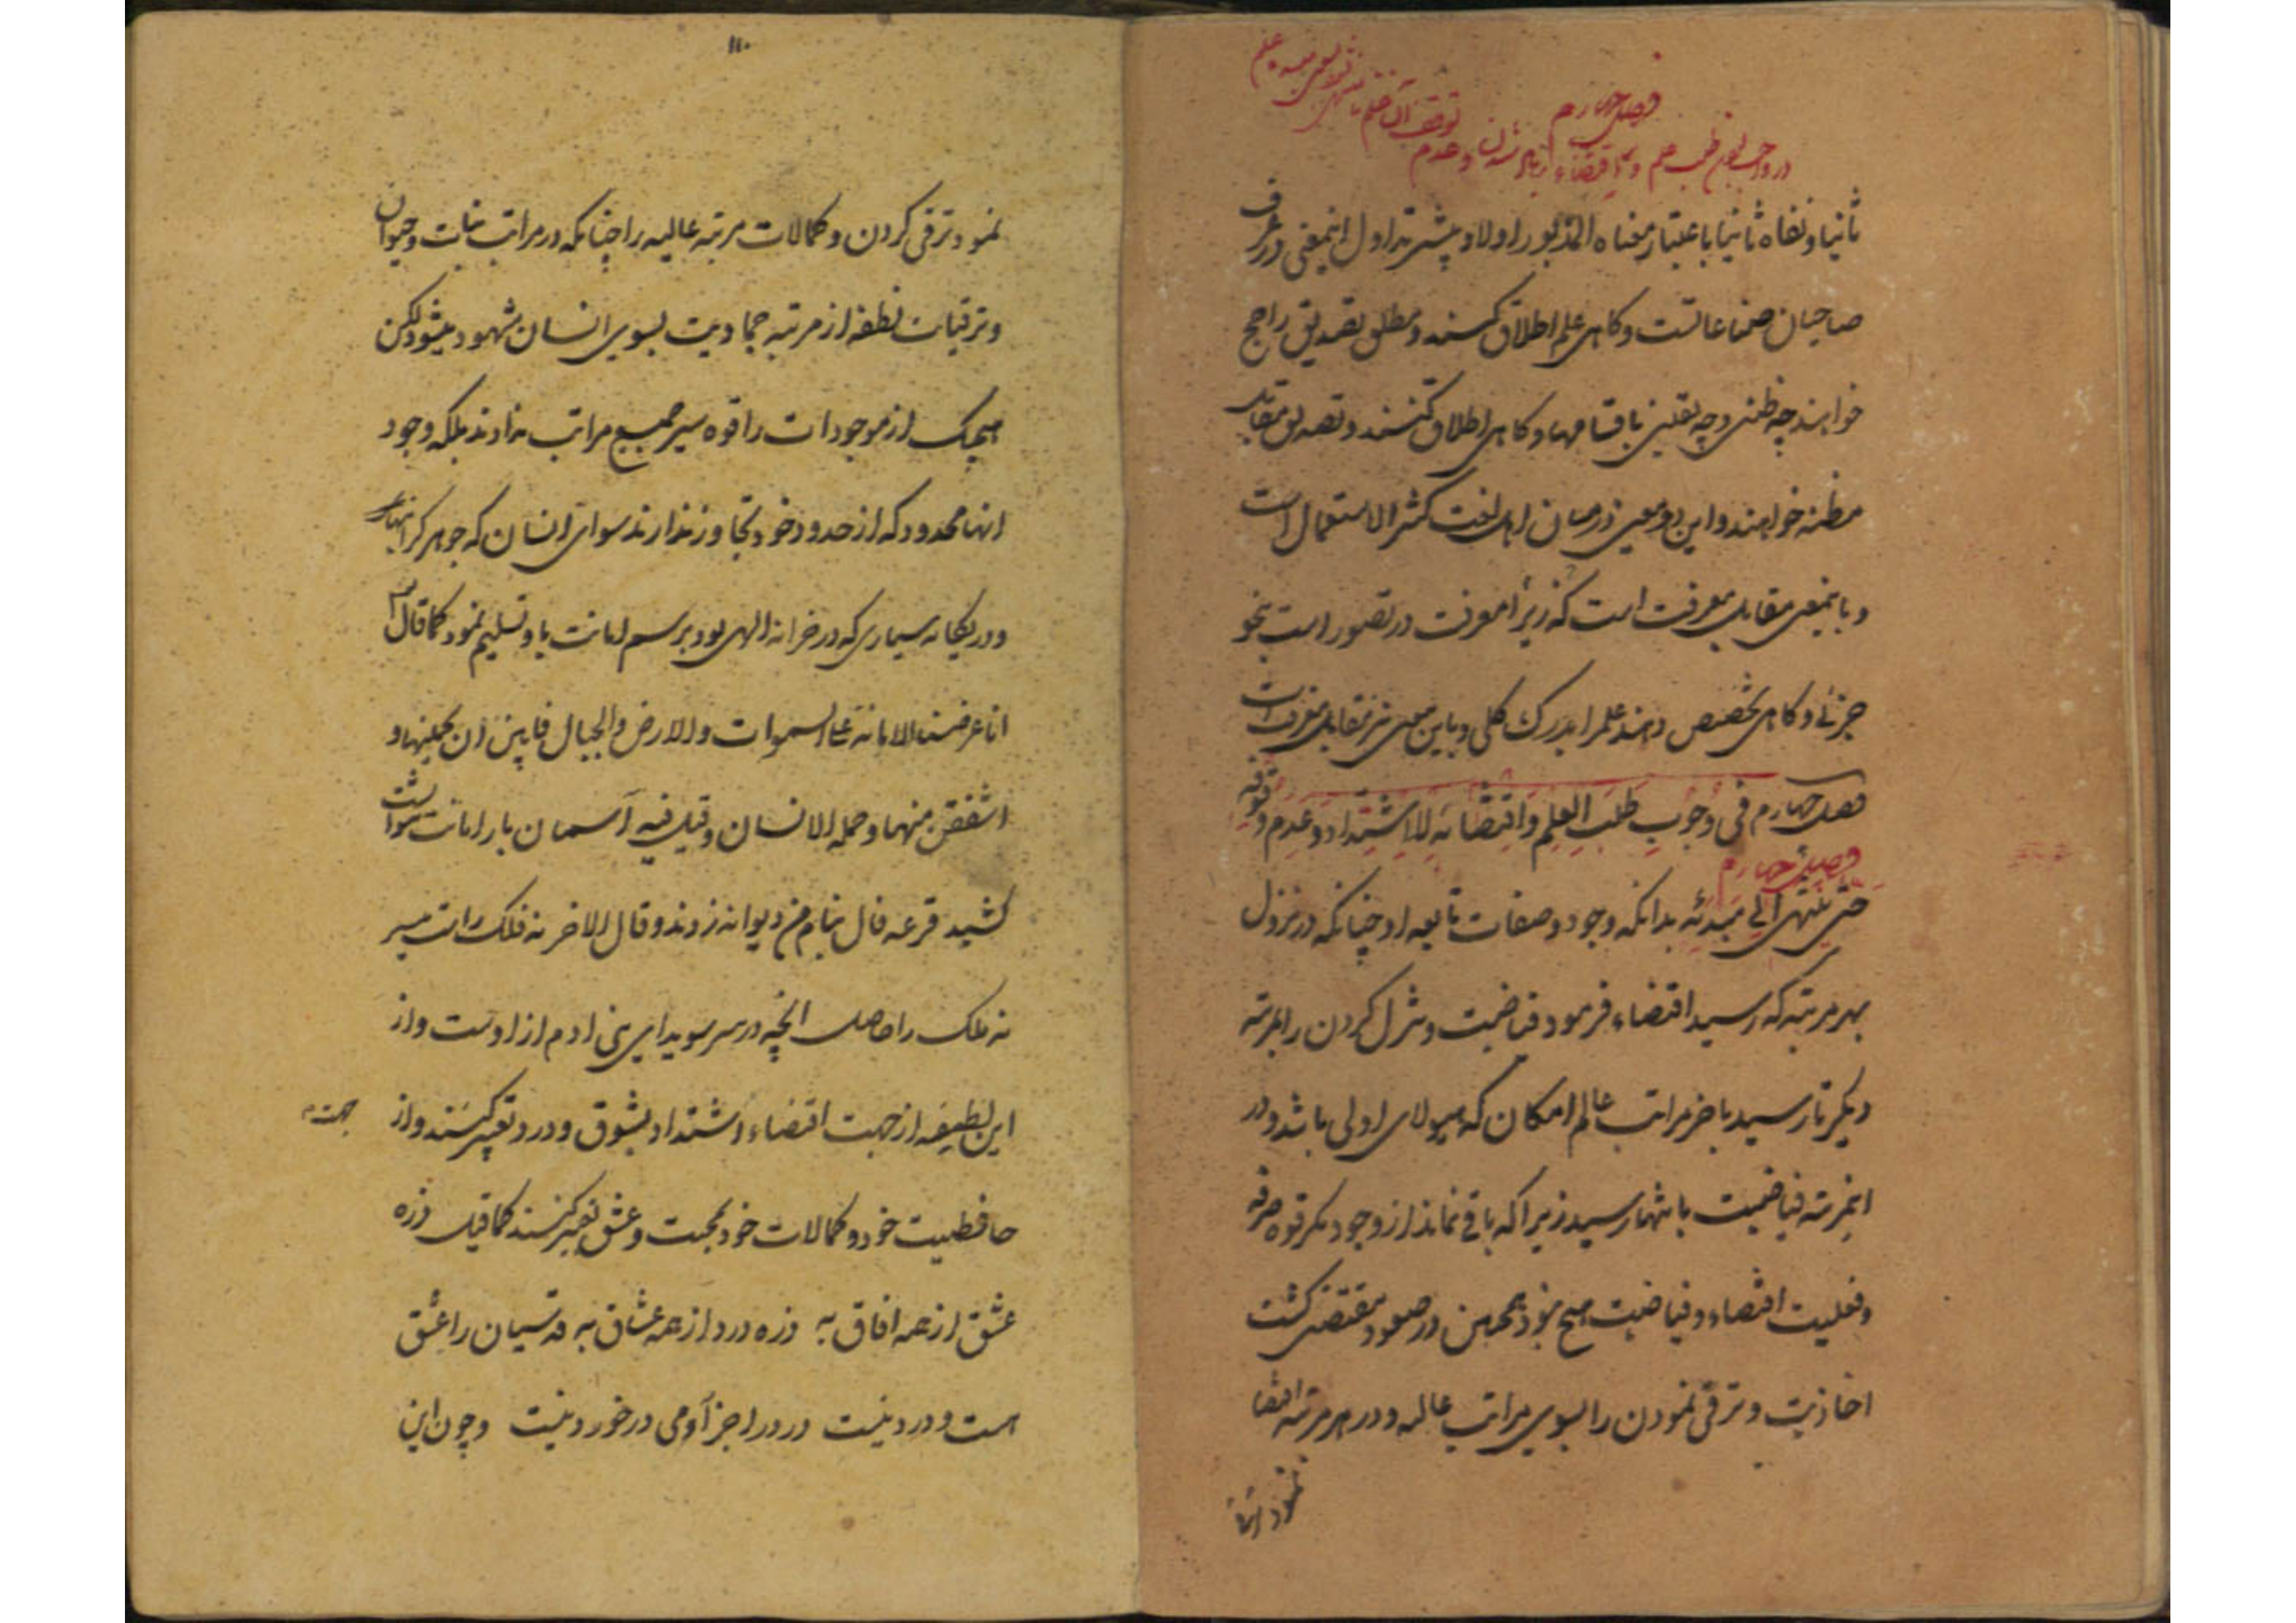 فصل چهارم
در واجب بودن طلب علم و اقتضاء زیاد شدن و عدم
توقف آن علم تا منتهی شود بسوی مبدء علم
ثانیا و نفاه ثانیا باعتبار معناه المذبور اولا و پیشتر تداول اینمعنی در عرف
صاحبان صناعاتست و کاهی علم اطلاق کنند و مطلق تصدیق راجح
خواهند چه ظنی و چه یقینی باقسامها و کاهی اطلاق کنند و تصدیق مقابل
مظنه خواهند و این دو معنی در میان اهل لغت کثیر الاستعمال است
و باینمعنی مقابل معرفت است که زیرا معرفت در تصور است بنحو
جزئی و کاهی تخصیص دهند علم را بدرک کلی و باین معنی نیز مقابل معرفت است
فصل چهارم فی وجوب طلب العلم و اقتضائه للاشتداد و عدم وقوفه
فصل چهارم
حتی ینتهی الی مبدئه بدانکه وجود و صفات تابعه او چنانکه در نزول
بهر مرتبه که رسید اقتضاء فرمود فیاضیت و تنزل کردن را بمرتبه
دیکر تا رسید باخر مراتب عالم امکان که هیولای اولی باشد و در
اینمرتبه فیاضیت بانتها رسید زیرا که باقی نماند از وجود مکر قوه صرفه
و فعلیت اقتضاء و فیاضیت هیچ نبود همچنین در صعود مقتضی کشت
اخاذیت و ترقی نمودن را بسوی مراتب عالیه و در هر مرتبه اقتضا
نمود ترقی
۱۱۰
نمود ترقی کردن و کمالات مرتبه عالیه را چنانکه در مراتب نبات و حیوان
و ترقیات نطفه از مرتبه جمادیت بسوی انسان مشهود میشود لکن
هیچیک از موجودات را قوه سیر جمیع مراتب ندادند بلکه وجود
انها محدود که از حدود خود تجاوز ندارند سوای انسان که جوهر کرانبها
و در یکانه سیاری که در خزانه الهی بود برسم امانت باو تسلیم نمود کما قال
انا عرضنا الامانة علی السموات والارض والجبال فابین ان یحملنها و
اشفقن منها و حمله الانسان و قیل فیه آسمان بار امانت نتوانست
کشید قرعه فال بنام من دیوانه زدند و قال الاخر نه فلک راست میسر
نه ملک را حاصل انچه در سر سویدای بنی ادم از اوست و از
این لطیفه از جهت اقتضاء اشتداد بشوق و درد تعبیر کنند و از
جهت
حافظیت خود و کمالات خود بمحبت و عشق تعبیر کنند کما قیل ذره
عشق از همه افاق به ذره درد از همه عشاق به قدسیان را عشق
هست و درد نیست درد را جز آدمی در خورد نیست و چون این